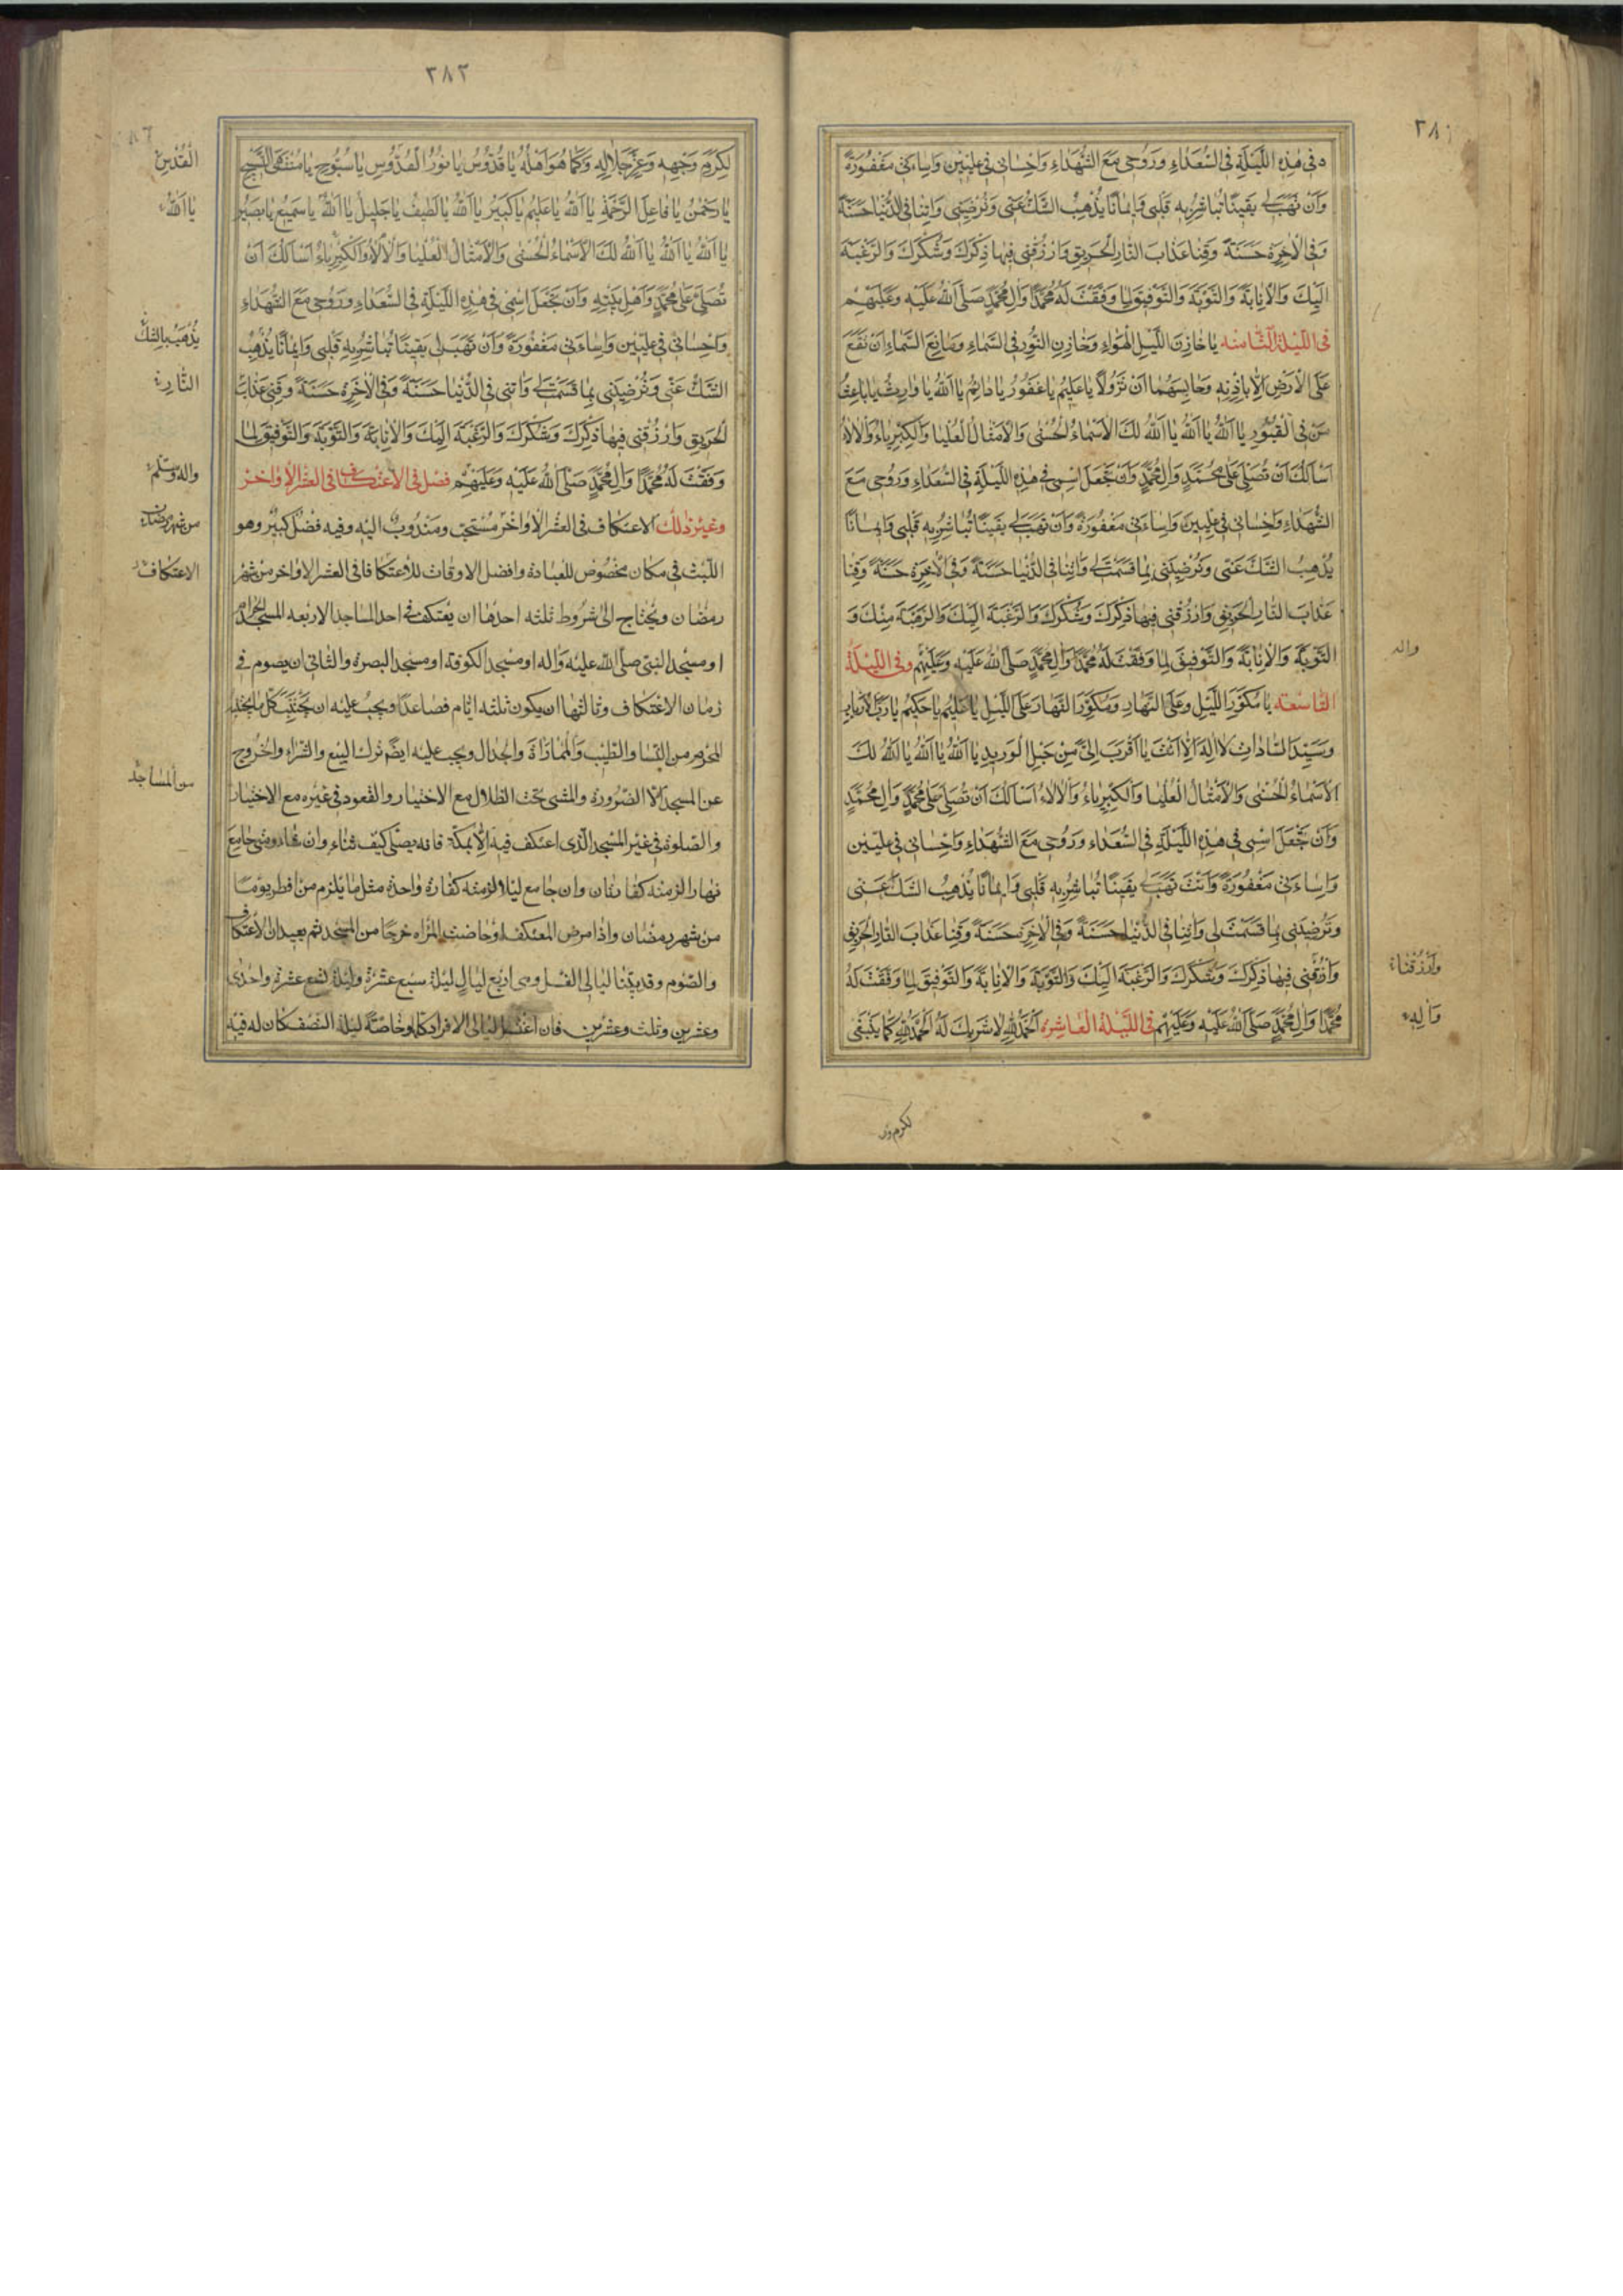 ٢٨١
ه في هٰذِهِ اللَّيْلَةِ فِي السُّعَدٰاءِ وَرُوحي مَعَ الشُّهَدٰاءِ وَاِحْسٰاني في عِلِّيّينَ وَاِسٰاءَتي مَغْفُورَةً
وَاَنْ تَهَبَ لي يَقينًا تُبٰاشِرُ بِهِ قَلْبي وَايمٰانًا يُذْهِبُ الشَّكَّ عَنّي وَتُرْضِيَني وَاٰتِنٰا فِي الدُّنْيٰا حَسَنَةً
وَفِي الْاٰخِرَةِ حَسَنَةً وَقِنٰا عَذٰابَ النّٰارِ الْحَريقِ وَارْزُقْني فيهٰا ذِكْرَكَ وَشُكْرَكَ وَالرَّغْبَةَ
اِلَيْكَ وَالْاِنٰابَةَ وَالتَّوْبَةَ وَالتَّوْفيقَ لِمٰا وَفَّقْتَ لَهُ مُحَمَّدًا وَاٰلَ مُحَمَّدٍ صَلَّى اللهُ عَلَيْهِ وَعَلَيْهِمْ
فِي اللَّيْلَةِ الثّٰامِنَه يٰا خٰازِنَ اللَّيْلِ الْهَوٰاءِ وَخٰازِنَ النُّورِ فِي السَّمٰاءِ وَمٰانِعَ السَّمٰاءِ اَنْ تَقَعَ
عَلَى الْاَرْضِ اِلّٰا بِاِذْنِهِ وَحٰابِسَهُمٰا اَنْ تَزُولٰا يٰا عَليمُ يٰا غَفُورُ يٰا دٰائِمُ يٰا اَللهُ يٰا وٰارِثُ يٰا بٰاعِثُ
مَنْ فِي الْقُبُورِ يٰا اَللهُ يٰا اَللهُ يٰا اَللهُ لَكَ الْاَسْمٰاءُ الْحُسْنٰى وَالْاَمْثٰالُ الْعُلْيٰا وَالْكِبْرِيٰاءُ وَالْاٰلٰاءُ
اَسْاَلُكَ اَنْ تُصَلِّيَ عَلٰى مُحَمَّدٍ وَاٰلِ مُحَمَّدٍ وَاَنْ تَجْعَلَ اسْمي في هٰذِهِ اللَّيْلَةِ فِي السُّعَدٰاءِ وَرُوحي مَعَ
الشُّهَدٰاءِ وَاِحْسٰاني في عِلِّيّينَ وَاِسٰاءَتي مَغْفُورَةً وَاَنْ تَهَبَ لي يَقينًا تُبٰاشِرُ بِهِ قَلْبي وَايمٰانًا
يُذْهِبُ الشَّكَّ عَنّي وَتُرْضِيَني بِمٰا قَسَمْتَ لي وَاٰتِنٰا فِي الدُّنْيٰا حَسَنَةً وَفِي الْاٰخِرَةِ حَسَنَةً وَقِنٰا
عَذٰابَ النّٰارِ الْحَريقِ وَارْزُقْني فيهٰا ذِكْرَكَ وَشُكْرَكَ وَالرَّغْبَةَ اِلَيْكَ وَالرَّهْبَةَ مِنْكَ وَ
التَّوْبَةَ وَالْاِنٰابَةَ وَالتَّوْفيقَ لِمٰا وَفَّقْتَ لَهُ مُحَمَّدًا وَاٰلَ مُحَمَّدٍ صَلَّى اللهُ عَلَيْهِ وَعَلَيْهِمْ وَفِي اللَّيْلَةِ
واله
التّٰاسعَه يٰا مُكَوِّرَ اللَّيْلِ وَعَلَى النَّهٰارِ وَمُكَوِّرَ النَّهٰارِ عَلَى اللَّيْلِ يٰا عَليمُ يٰا حَكيمُ يٰا رَبَّ الْاَرْبٰابِ
وَسَيِّدَ السّٰادٰاتِ لٰا اِلٰهَ اِلّٰا اَنْتَ يٰا اَقْرَبَ اِلَيَّ مِنْ حَبْلِ الْوَريدِ يٰا اَللهُ يٰا اَللهُ يٰا اَللهُ لَكَ
الْاَسْمٰاءُ الْحُسْنٰى وَالْاَمْثٰالُ الْعُلْيٰا وَالْكِبْرِيٰاءُ وَالْاٰلٰاءُ اَسْاَلُكَ اَنْ تُصَلِّيَ عَلٰى مُحَمَّدٍ وَاٰلِ مُحَمَّدٍ
وَاَنْ تَجْعَلَ اسْمي في هٰذِهِ اللَّيْلَةِ فِي السُّعَدٰاءِ وَرُوحي مَعَ الشُّهَدٰاءِ وَاِحْسٰاني في عِلِّيّينَ
وَاِسٰاءَتي مَغْفُورَةً وَاَنْتَ تَهَبَ لي يَقينًا تُبٰاشِرُ بِهِ قَلْبي وَايمٰانًا يُذْهِبُ الشَّكَّ عَنّي
وَتُرْضِيَني بِمٰا قَسَمْتَ لي وَاٰتِنٰا فِي الدُّنْيٰا حَسَنَةً وَفِي الْاٰخِرَةِ حَسَنَةً وَقِنٰا عَذٰابَ النّٰارِ الْحَريقِ
وَارْزُقْني فيهٰا ذِكْرَكَ وَشُكْرَكَ وَالرَّغْبَةَ اِلَيْكَ وَالتَّوْبَةَ وَالْاِنٰابَةَ وَالتَّوْفيقَ لِمٰا وَفَّقْتَ لَهُ
وَارْزُقْنٰا
مُحَمَّدًا وَاٰلَ مُحَمَّدٍ صَلَّى اللهُ عَلَيْهِ وَعَلَيْهِمْ فِي اللَّيْلَةِ الْعٰاشِرَه اَلْحَمْدُ لِلّٰهِ لٰا شَريكَ لَهُ اَلْحَمْدُ لِلّٰهِ كَمٰا يَنْبَغي
وَاٰلِهِ
لكرم وجه
٢٨٢
لِكَرَمِ وَجْهِهِ وَعِزِّ جَلٰالِهِ وَكَمٰا هُوَ اَهْلُهُ يٰا قُدُّوسُ يٰا نُورُ الْقُدُّوسِ يٰا سُبُّوحُ يٰا مُنْتَهَى التَّسْبيحِ
الْقُدْسِ
يٰا رَحْمٰنُ يٰا فٰاعِلَ الرَّحْمَةِ يٰا اَللهُ يٰا عَليمُ يٰا كَبيرُ يٰا اَللهُ يٰا لَطيفُ يٰا جَليلُ يٰا اَللهُ يٰا سَميعُ يٰا بَصيرُ
يٰا اَللهُ
يٰا اَللهُ يٰا اَللهُ يٰا اَللهُ لَكَ الْاَسْمٰاءُ الْحُسْنٰى وَالْاَمْثٰالُ الْعُلْيٰا وَالْاٰلٰاءُ وَالْكِبْرِيٰاءُ اَسْاَلُكَ اَنْ
تُصَلِّيَ عَلٰى مُحَمَّدٍ وَاَهْلِ بَيْتِهِ وَاَنْ تَجْعَلَ اسْمي في هٰذِهِ اللَّيْلَةِ فِي السُّعَدٰاءِ وَرُوحي مَعَ الشُّهَدٰاءِ
وَاِحْسٰاني في عِلِّيّينَ وَاِسٰاءَتي مَغْفُورَةً وَاَنْ تَهَبَ لي يَقينًا تُبٰاشِرُ بِهِ قَلْبي وَايمٰانًا يُذْهِبُ
يُذْهَبُ بِالشَّكِّ
الشَّكَّ عَنّي وَتُرْضِيَني بِمٰا قَسَمْتَ لي وَاٰتِني فِي الدُّنْيٰا حَسَنَةً وَفِي الْاٰخِرَةِ حَسَنَةً وَقِني عَذٰابَ
النّٰارِ
الْحَريقِ وَارْزُقْني فيهٰا ذِكْرَكَ وَشُكْرَكَ وَالرَّغْبَةَ اِلَيْكَ وَالْاِنٰابَةَ وَالتَّوْبَةَ وَالتَّوْفيقَ لِمٰا
وَفَّقْتَ لَهُ مُحَمَّدًا وَاٰلَ مُحَمَّدٍ صَلَّى اللهُ عَلَيْهِ وَعَلَيْهِمْ فصل في الاعتكاف في العشر الاواخر
واله وسلم
وغير ذلك الاعتكاف في العشر الاواخر مستحب ومندوب اليه وفيه فضل كبير وهو
من شهر رمضان
اللبث في مكان مخصوص للعبادة وافضل الاوقات للاعتكاف في العشر الاواخر من شهر
الاعتكاف
رمضان ويحتاج الى شروط ثلثه احدها ان يعتكف في احد المساجد الاربعه المسجد الحرام
او مسجد النبي صلى الله عليه واله او مسجد الكوفة او مسجد البصرة والثاني ان يصوم في
زمان الاعتكاف وثالثها ان يكون ثلثه ايام فصاعدًا ويجب عليه ان يجتنب كل ما يجتنبه
المحرم من النسا والطيب والمماراة والجدال ويجب عليه ايضًا ترك البيع والشراء والخروج
عن المسجد الا لضرورة والمشي تحت الظلال مع الاختيار والقعود في غيره مع الاختيار
من المساجد
والصلوة في غير المسجد الذي اعتكف فيه الا بمكة فانه يصلي كيف شاء واين شاء ومتى جامع
نهارا لزمته كفارتان وان جامع ليلا لزمته كفارة واحدة مثل ما يلزم من افطر يومًا
من شهر رمضان واذا مرض المعتكف او حاضت المراه خرجا من المسجد ثم يعيدان الاعتكاف
والصوم وقد بينا ليالي الغسل وهي اربع ليال ليلة سبع عشرة وليلة تسع عشرة واحدى
وعشرين وثلث وعشرين فان اغتسل ليالي الافراد كلها وخاصة ليلة النصف كان له فيه